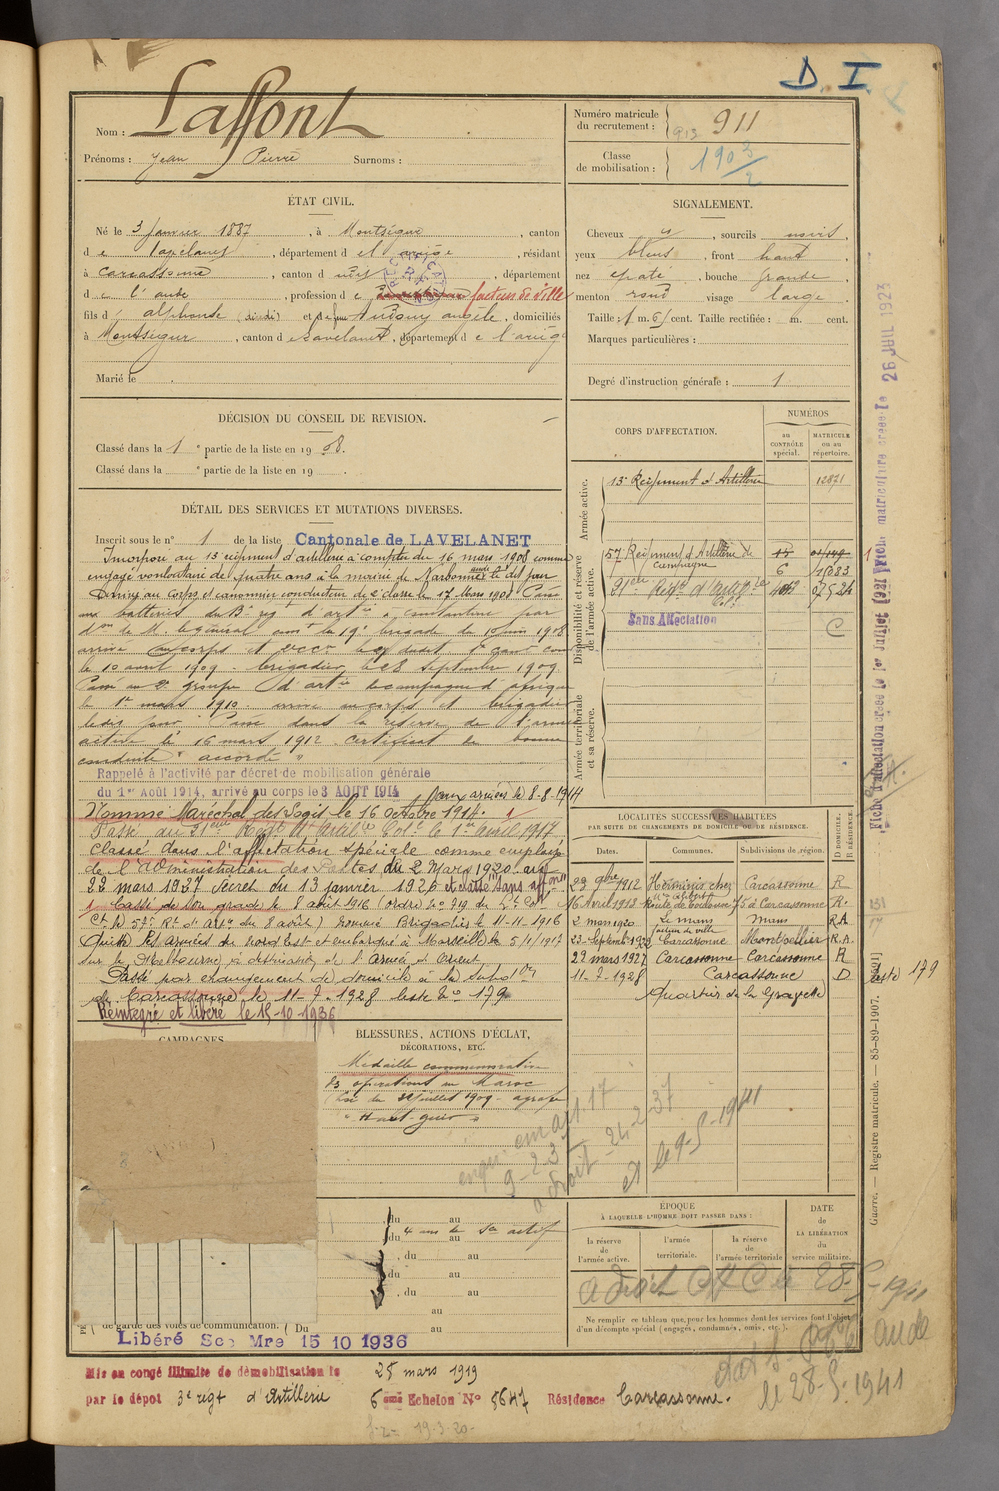 D. I.
Nom : Laffont
Prénoms : Jean Pierre Surnoms :
Numéro matricule du recrutement : 913 911
Classe de mobilisation : 1903/2
ÉTAT CIVIL.
Né le 3 janvier 1887, à Montségur, canton
de Lavelanet, département de l'ariège, résidant
à Carcassonne, canton d, département
de l'aude, profession de facteur de ville
fils d'alphonse (décédé) et de angèle, domiciliés
à Montségur, canton de Lavelanet, département de l'ariège
Marié le
SIGNALEMENT.
Cheveux, sourcils noirs,
yeux bleus, front haut,
nez épaté, bouche grande,
menton rond, visage large.
Taille : 1 m. 61 cent. Taille rectifiée : m. cent.
Marques particulières :
Degré d'instruction générale : 1
DÉCISION DU CONSEIL DE REVISION.
Classé dans la 1e partie de la liste en 1908.
Classé dans la e partie de la liste en 19 .
DÉTAIL DES SERVICES ET MUTATIONS DIVERSES.
Inscrit sous le n° 1 de la liste Cantonale de LAVELANET
Incorporé au 13e régiment d'artillerie à compter du 16 mars 1908 comme
engagé volontaire de quatre ans à la mairie de Narbonne aude le dit jour
Arrivé au Corps et canonnier conducteur de 2e classe le 17 Mars 1908 Passé
aux batteries du 13e régt d'artie à constantine par
Don de M. le général comt la 19e brigade du 10 juin 1908
arrivé au corps et
le 10 avril 1909. brigadier le 28 Septembre 1909.
Passé au 2e groupe d'artie de campagne d'afrique
le 1er mars 1910. arrivé au corps et brigadier
ledit jour. Passé dans la réserve de l'armée
active le 16 mars 1912. certificat de bonne
conduite "accordé"
Rappelé à l'activité par décret de mobilisation générale
du 1er Août 1914, arrivé au corps le 3 AOUT 1914 aux armées le 8-8-1914
Nommé Maréchal des Logis le 16 Octobre 1914.
Passé au 21eme Régt d'Artillie Cole le 1er avril 1917
Classé dans l'affectation spéciale comme employé
de l'administration des Postes du 2 Mars 1920 au
22 mars 1927 décret du 13 janvier 1926 et classé "sans affon"
Cassé de son grade le 8 août 1916 (ordre No 719 du Lt Col
Ct le 57e Rt d'Arte du 8 août) Nommé Brigadier le 11-11-1916
Quitte les armées du Nord Est et embarqué à Marseille le 5/1/1917
sur le Melbourne à destination de l'Armée d'Orient
Passé par changement de domicile à la Subdon
de Carcassonne le 11-7-1928 liste No 179
Réintégré et libéré le 15-10-1936
CORPS D'AFFECTATION.
NUMÉROS
au CONTRÔLE spécial.
MATRICULE ou au répertoire.
Armée active.
13e Régiment d'Artillerie 12871
Disponibilité et réserve de l'armée active.
57 Régiment d'Artillerie de campagne 6 15083
21eme Régt d'Artillie Cole
Sans Affectation
C
Armée territoriale et sa réserve.
LOCALITÉS SUCCESSIVES HABITÉES
PAR SUITE DE CHANGEMENTS DE DOMICILE OU DE RÉSIDENCE.
Dates. Communes. Subdivisions de région. D DOMICILE. R RÉSIDENCE.
29 9bre 1912 Herminis chez Carcassonne R
16 Avril 1913 Route de Toulouse 75 à Carcassonne R.
2 mars 1920 Le mans Mans R.A.
facteur de ville
23-Septembre 1922 Carcassonne Montpellier R.A.
22 mars 1927 Carcassonne Carcassonne R
11-7-1928 Carcassonne D liste 179
Quartier de la Gravette
CAMPAGNES
BLESSURES, ACTIONS D'ÉCLAT,
DÉCORATIONS, ETC.
Médaille commémorative
des opérations au Maroc
Loi du 22 juillet 1909 - agrafe
"Haut-guir"
9-2-3
a droit 24-2-37
et le 9-5-1941
du au
du 4 ans de Sce actif au
du au
du au
du au
au
de garde des voies de communication. ( Du au
Libéré Sce Mre 15 10 1936
ÉPOQUE
À LAQUELLE L'HOMME DOIT PASSER DANS :
la réserve de l'armée active.
l'armée territoriale.
la réserve de l'armée territoriale
DATE de LA LIBÉRATION du service militaire.
a droit CC le 28-5-1941
Ne remplir ce tableau que pour les hommes dont les services font l'objet
d'un décompte spécial (engagés, condamnés, omis, etc.).
aude
le 28-5-1941
Mis en congé illimité de démobilisation le 25 mars 1919
par le dépôt 3e régt d'Artillerie 6eme Echelon No 5647 Résidence Carcassonne.
19-3-20-
Fiche d'affectation créée le 1er Juillet 1921 Fiche matriculaire créée le 26 JUIL 1923
Guerre. — Registre matricule. — 85-89-1907.